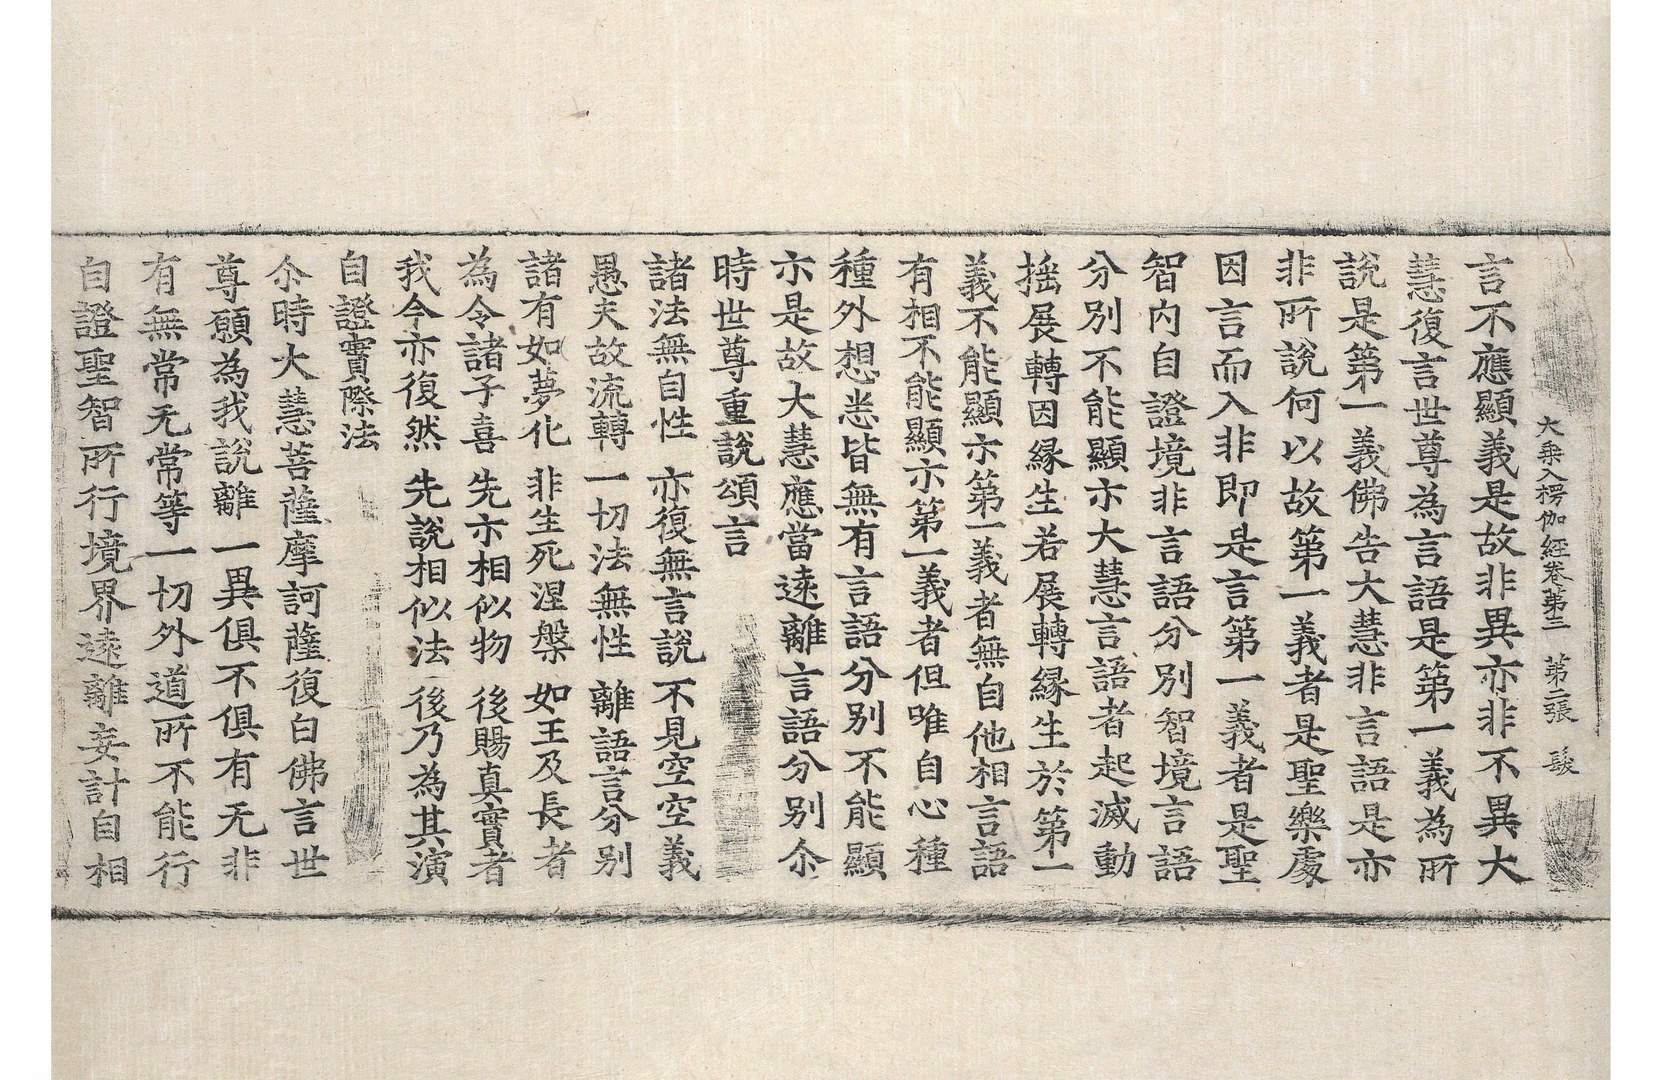 大乘入楞伽經卷第三 第二張 毉
言不應顯義是故非異亦非不異大
慧復言世尊為言語是第一義為所
說是第一義佛告大慧非言語是亦
非所說何以故第一義者是聖樂處
因言而入非即是言第一義者是聖
智內自證境非言語分別智境言語
分別不能顯示大慧言語者起滅動
搖展轉因緣生若展轉緣生於第一
義不能顯示第一義者無自他相言語
有相不能顯示第一義者但唯自心種
種外想悉皆無有言語分別不能顯
示是故大慧應當遠離言語分別尒
時世尊重說頌言
諸法無自性 亦復無言說 不見空空義
愚夫故流轉 一切法無性 離語言分別
諸有如夢化 非生死涅槃 如王及長者
為令諸子喜 先示相似物 後賜真實者
我今亦復然 先說相似法 後乃為其演
自證實際法
尒時大慧菩薩摩訶薩復白佛言世
尊願為我說離一異俱不俱有无非
有無常无常等一切外道所不能行
自證聖智所行境界遠離妄計自相